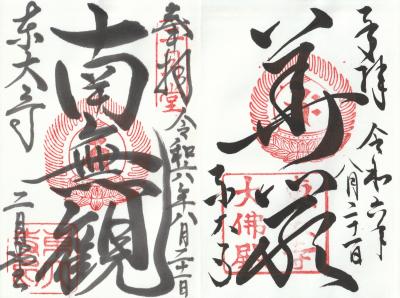 奉拝
令和六年八月二十一日
南無観
二月堂
東大寺
奉拝
令和六年
八月二十一日
華厳
東大寺
大佛殿